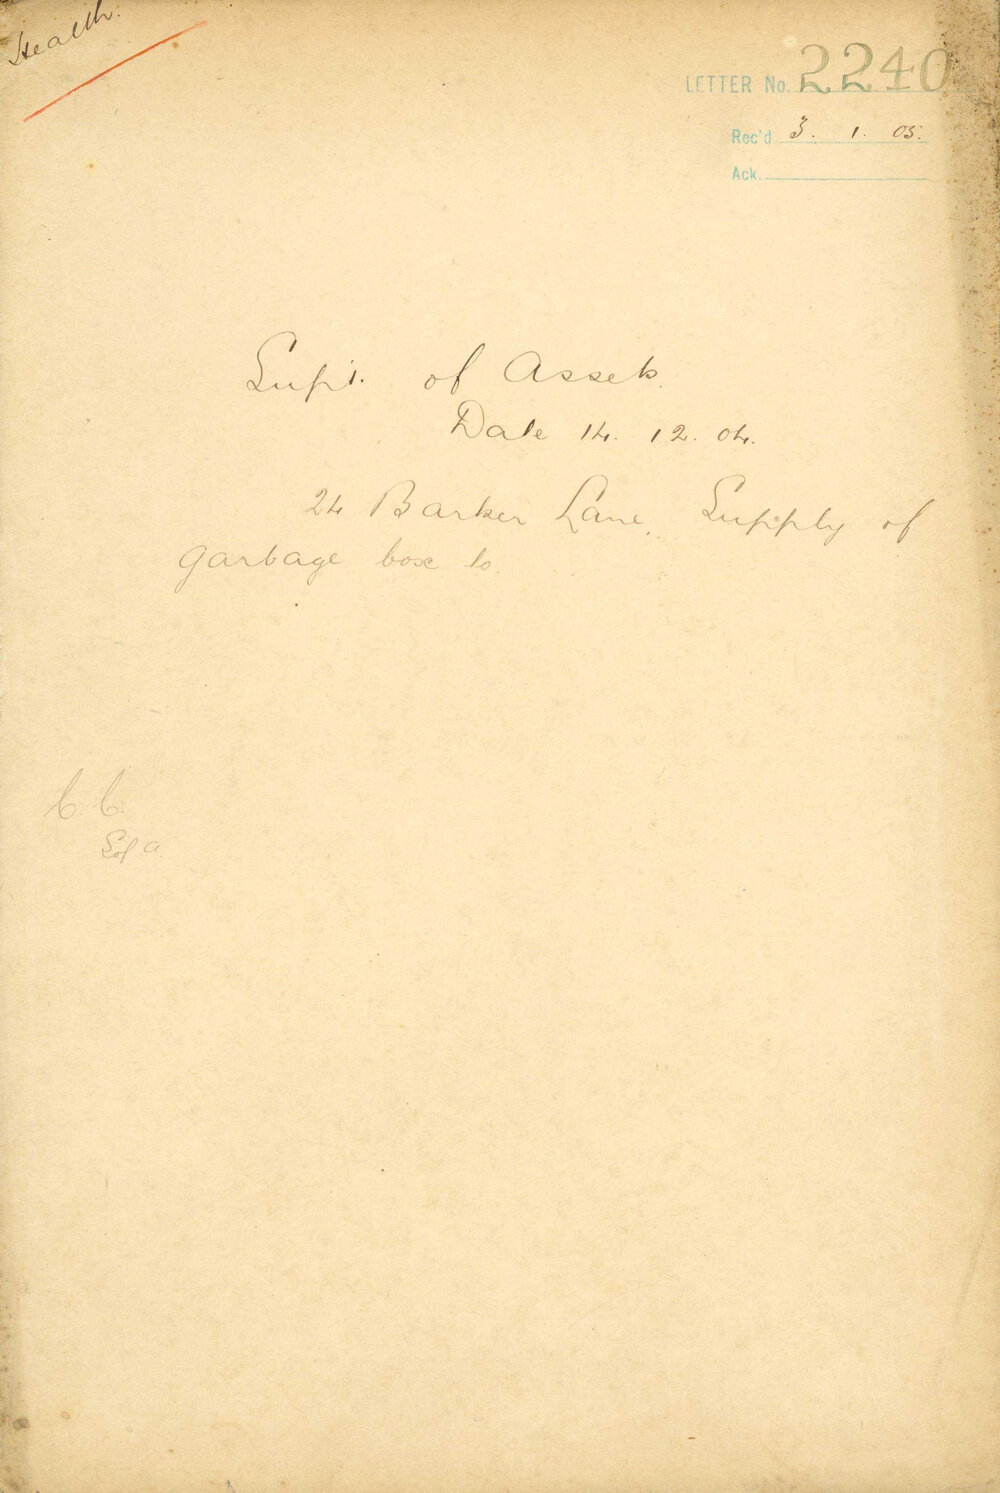 Health.
LETTER No. 2240
Rec'd 3. 1. 05.
Ack.
Supt. of Assets.
Date 14. 12. 04.
24 Barker Lane, Supply of
garbage box to.
C. C.
S of A.